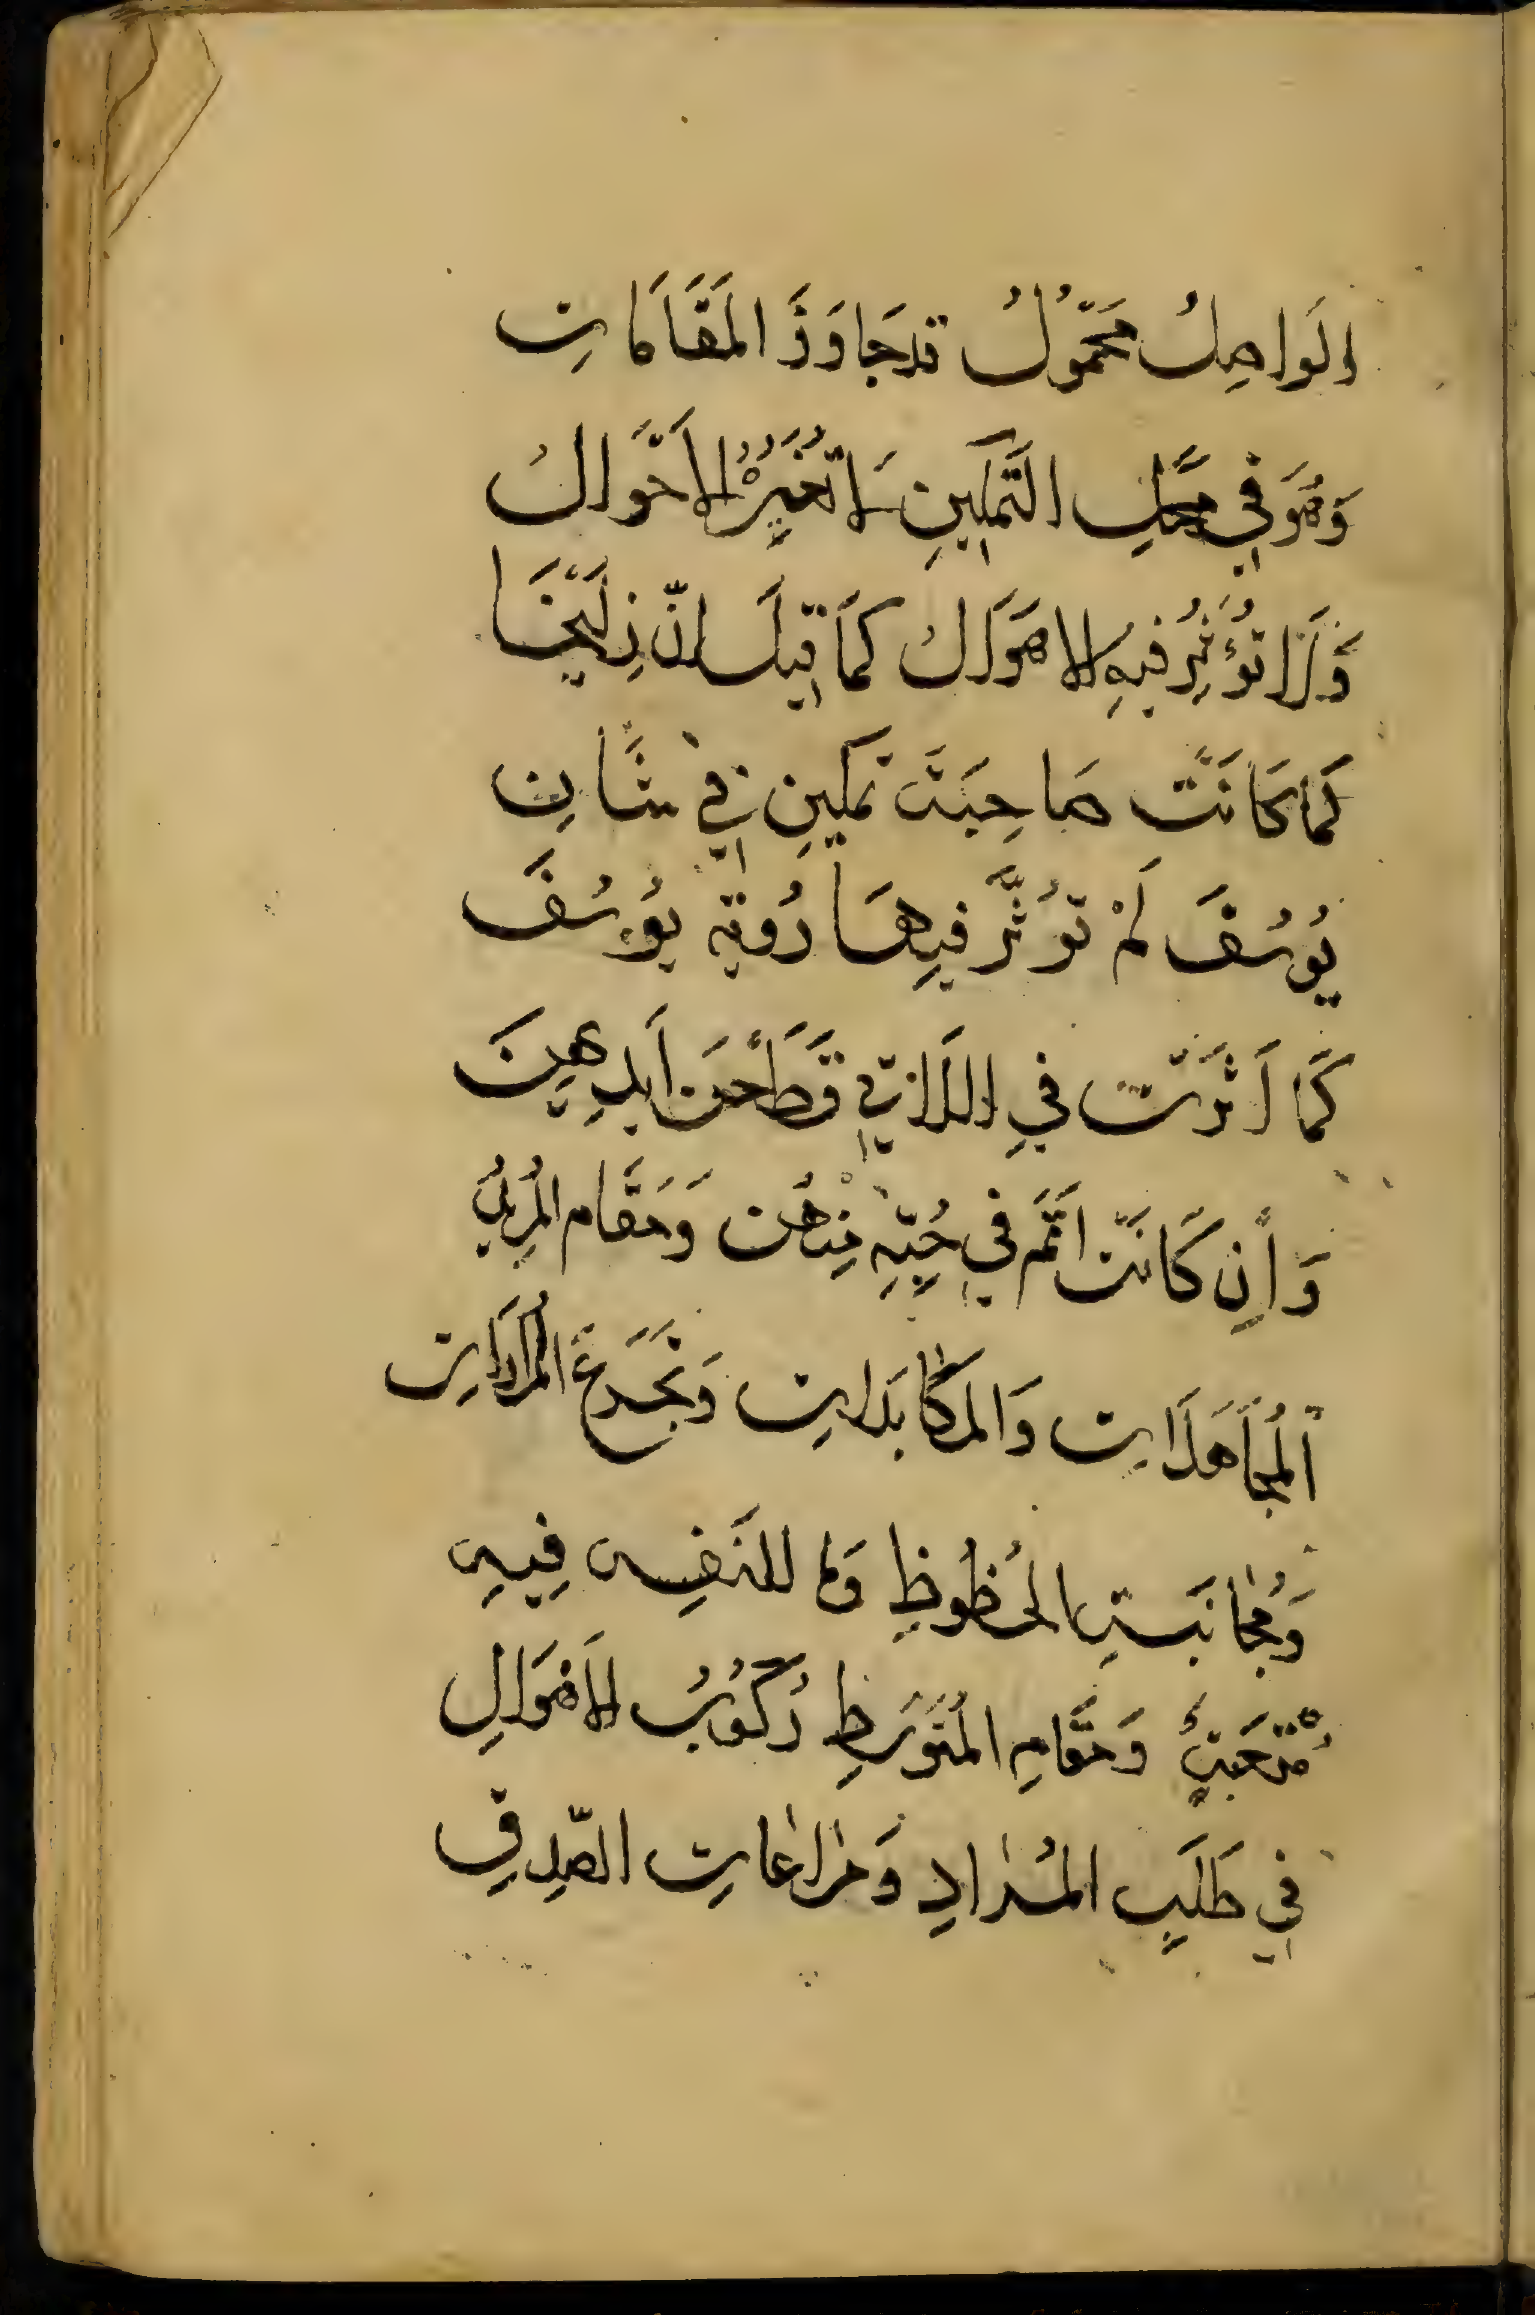 الوَاصِلُ مَحْمُولُ قد جَاوَزَ المَقَامَاتِ
وَهُوَ فِي مَحَلِ التَّمكِينِ لَا تُغَيِّرُهُ الأَحْوَالُ
وَلَا تُؤَثِّرُ فيهِ الاهوَالُ كمَا قِيلَ انّ زِلَيْخَا
لَمَا كَانَتْ صَاحِبَتَ تمكينِ فِي شَانِ
يُوسُفَ لَمْ تُوَثِّرْ فيهَا رُويه يُوسُفَ
كَمَا اَثَرَت فِي اللَّاتِي قَطَعْنَ اَيدِهِينَ
وَاِن كَانَت اتَم فِي حُبِّهِ مِنهُن وَمَقَام المُرِيدُ
اَلمُجَاهَدَاتِ وَالمُكَابَدَاتِ وَتَجَرع المُرَارَاتِ
وَمُجَانَبتِ الحُظُوظِ وَمَا للنَفِس فِيهِ
مُتعَبَتُ وَمَقَامِ المُتَوَسِطِ رُكُوبُ الاَهوَالِ
فِي طَلَبِ المُرَادِ وَمُرَاعَاتِ الصِّدقِ